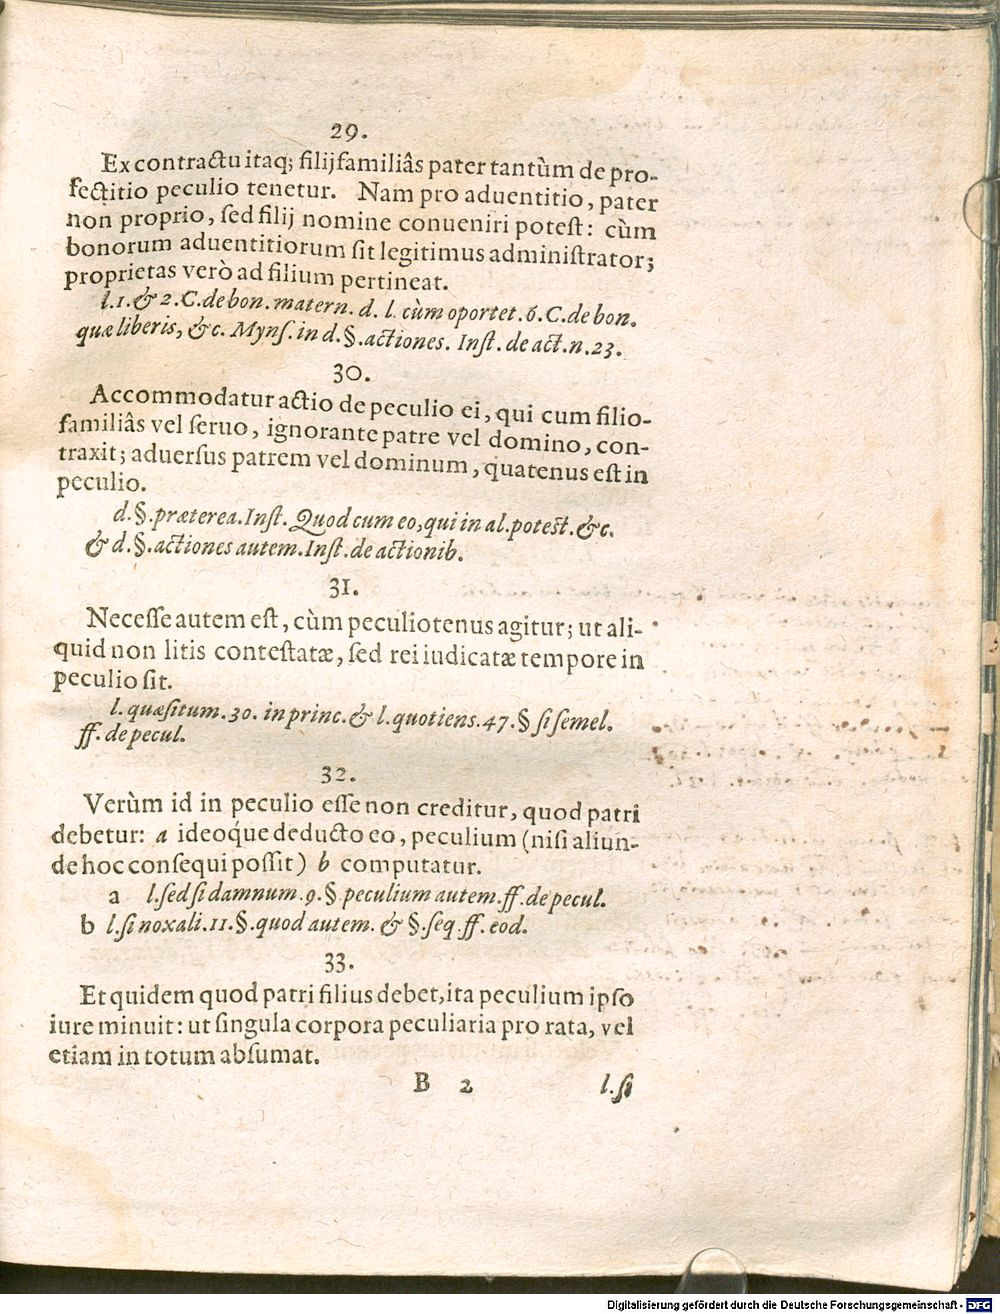 29.
Ex contractu itaq; filijfamiliâs pater tantùm de pro-
fectitio peculio tenetur. Nam pro aduentitio, pater
non proprio, sed filij nomine conueniri potest: cùm
bonorum aduentitiorum sit legitimus administrator;
proprietas verò ad filium pertineat.
l. 1. & 2. C. de bon. matern. d. l. cùm oportet. 6. C. de bon.
quæ liberis, &c. Myns. in d. §. actiones. Inst. de act. n. 23.
30.
Accommodatur actio de peculio ei, qui cum filio-
familiâs vel seruo, ignorante patre vel domino, con-
traxit; aduersus patrem vel dominum, quatenus est in
peculio.
d. §. præterea. Inst. Quod cum eo, qui in al. potest. &c.
& d. §. actiones autem. Inst. de actionib.
31.
Necesse autem est, cùm peculiotenus agitur; ut ali-
quid non litis contestatæ, sed rei iudicatæ tempore in
peculio sit.
l. quæsitum. 30. in princ. & l. quotiens. 47. § si semel.
ff. de pecul.
32.
Verùm id in peculio esse non creditur, quod patri
debetur: a ideoq́ue deducto eo, peculium (nisi aliun-
de hoc consequi possit) b computatur.
a l. sed si damnum. 9. § peculium autem. ff. de pecul.
b l. si noxali. 11. §. quod autem. & §. seq. ff. eod.
33.
Et quidem quod patri filius debet, ita peculium ipso
iure minuit: ut singula corpora peculiaria pro rata, vel
etiam in totum absumat.
B 2 l. si
Digitalisierung gefördert durch die Deutsche Forschungsgemeinschaft - DFG